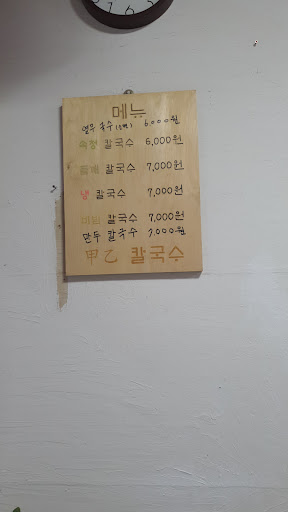 메뉴
열무 국수(소면) 6,000원
속청 칼국수 6,000원
들깨 칼국수 7,000원
냉 칼국수 7,000원
해물 칼국수 7,000원
만두 칼국수 7,000원
甲乙 칼국수